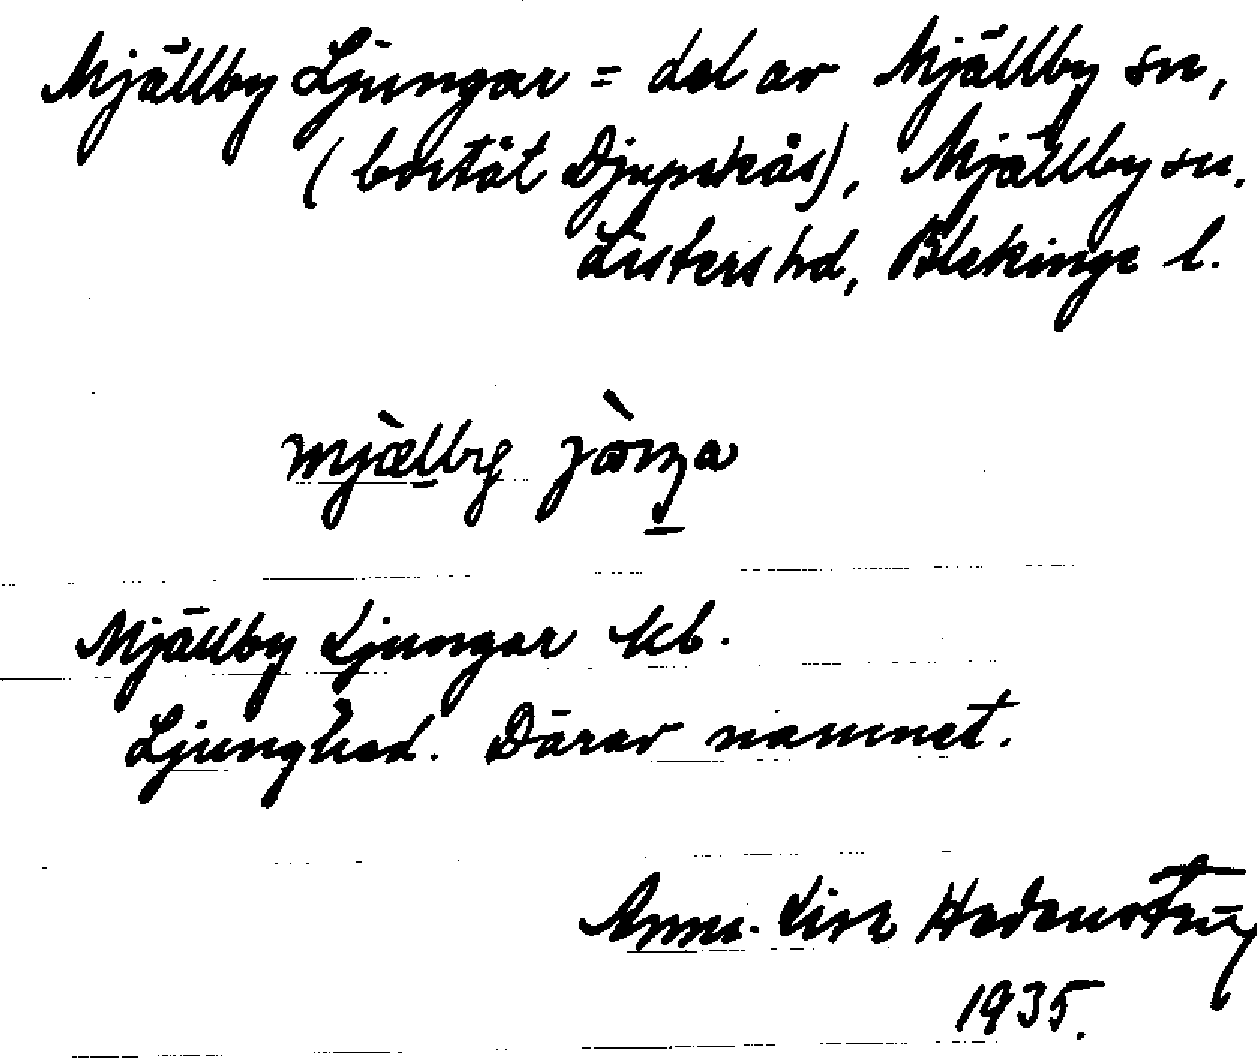 Mjällby Ljungar = del av Mjällby sn,
(bortåt Djupekås), Mjällby sn.
Listers hd, Blekinge l.
mjæ̀lby jòŋa
Mjällby Ljungar kb.
Ljunghed. Därav namnet.
Anna-Lisa
1935.